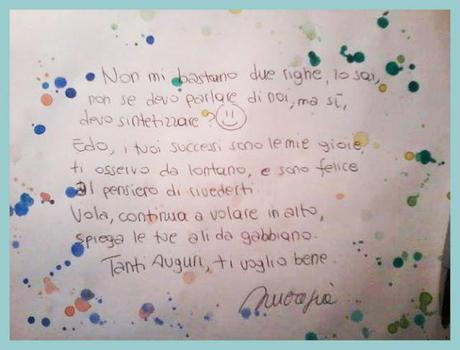 Non mi bastano due righe, lo sai,
non se devo parlare di noi, ma sì,
devo sintetizzare?
Edo, i tuoi successi sono le mie gioie,
ti osservo da lontano, e sono felice
al pensiero di rivederti
Vola, continua a volare in alto,
spiega le tue ali da gabbiano.
Tanti Auguri, ti voglio bene